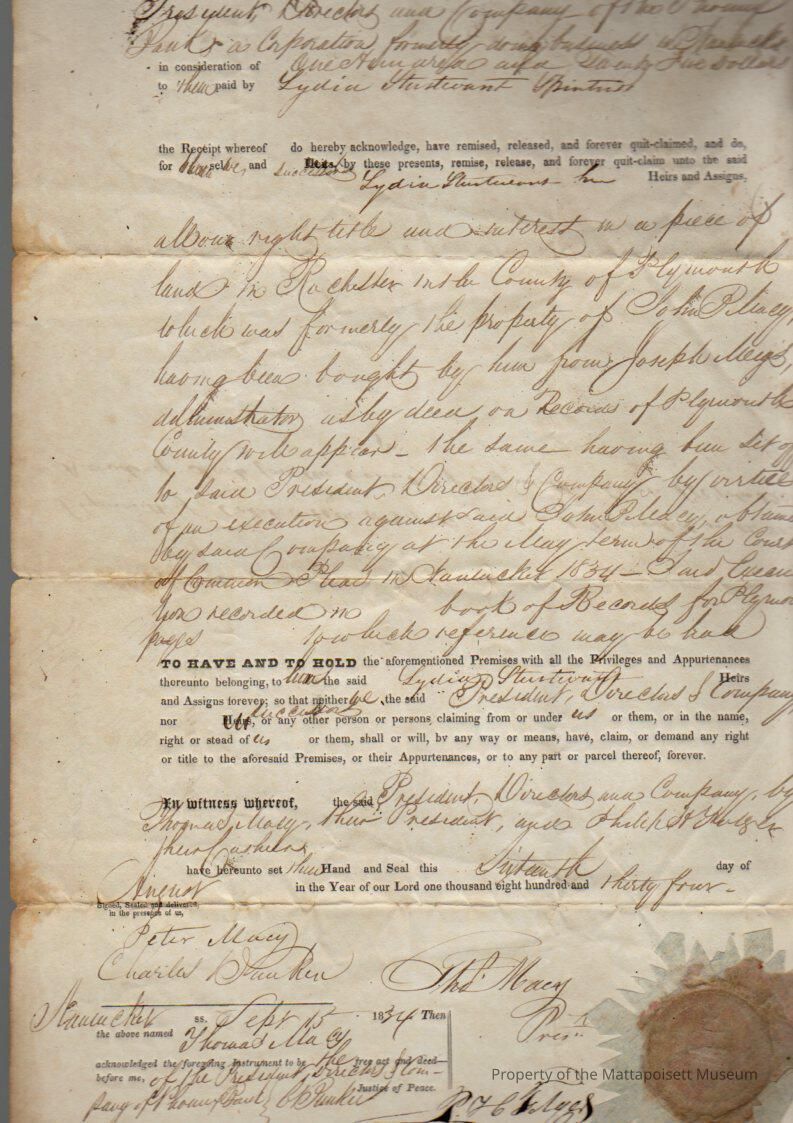 President, Directors and Company of the Phoenix
Bank a Corporation formerly doing business in Nantucket
in consideration of One Hundred and Seventy Five Dollars
to them paid by Lydia Sturtevant Spinster
the Receipt whereof do hereby acknowledge, have remised, released, and forever quit-claimed, and do,
for themselves, and successors Heirs, by these presents, remise, release, and forever quit-claim unto the said
Lydia Sturtevant her Heirs and Assigns,
all our right title and interest in a piece of
land in Rochester in the County of Plymouth
which was formerly the property of John P. Macy,
having been bought by him from Joseph Meigs,
administrator as by deed, on Records of Plymouth
County will appear - the same having been set of
to said President, Directors & Company by virtue
of an execution against said John P. Macy, obtained
by said Company at the May term of the Court
of Common Pleas in Nantucket 1834 - Said Execu
tion recorded in book of Records for Plymou
pages to which reference may be had
TO HAVE AND TO HOLD the aforementioned Premises with all the Privileges and Appurtenances
thereunto belonging, to the said Lydia Sturtevant Heirs
and Assigns forever; so that neither we the said President, Directors & Company,
nor our successors Heirs, or any other person or persons claiming from or under us or them, or in the name,
right or stead of us or them, shall or will, by any way or means, have, claim, or demand any right
or title to the aforesaid Premises, or their Appurtenances, or to any part or parcel thereof, forever.
In witness whereof, the said President, Directors and Company, by
Thomas Macy, their President, and Philip H Folger
their Cashier,
have hereunto set their Hand and Seal this Sixteenth day of
August in the Year of our Lord one thousand eight hundred and thirty four -
Signed, Sealed and delivered,
in the presence of us,
Peter Macy
Charles Bunker
Thos Macy
Prest
Nantucket ss. Sept 15 1834 Then
the above named Thomas Macy
acknowledged the foregoing instrument to be the free act and deed
before me, of the President, Directors & Com-
Justice of Peace.
pany of Phoenix Bank C Bunker
P H Folger
Property of the Mattapoisett Museum